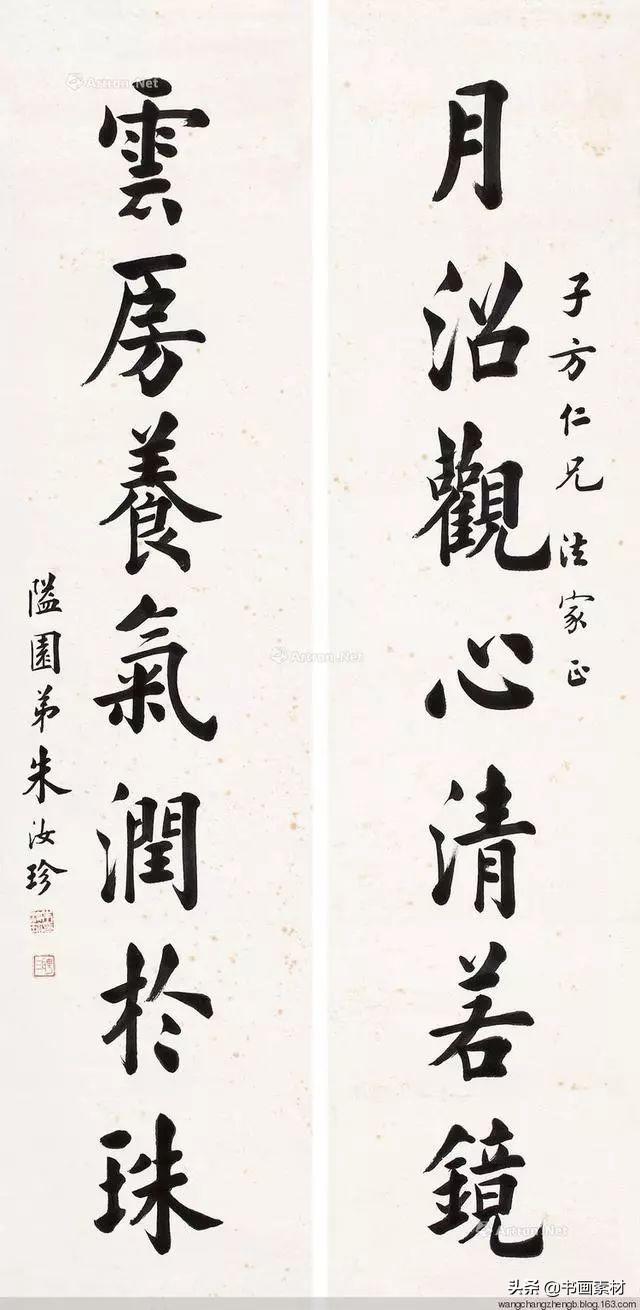 子方仁兄法家正
月沼觀心清若鏡
雲房養氣潤於珠
隘園弟朱汝珍
Artron.Net
Artron.Net
Artron.Net
Artron.Net
头条 @书画素材
wangchangzhengb.blog.163.com